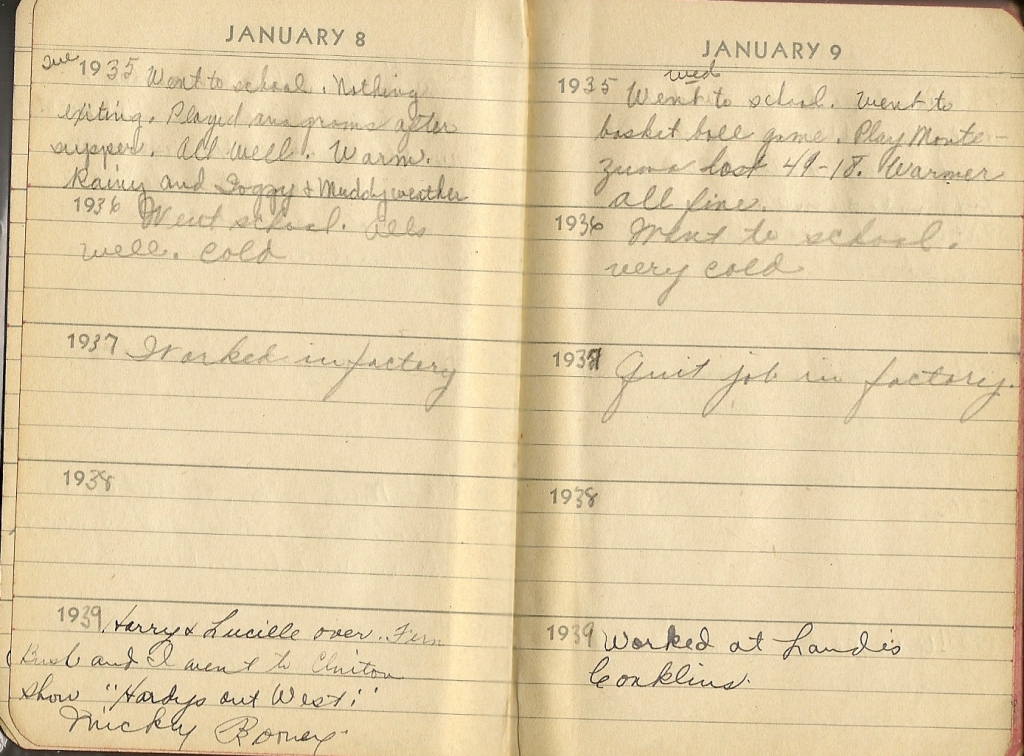 JANUARY 8
Tue 1935 Went to school. Nothing
exiting. Played anagrams after
supper. All well. Warm.
Rainy and Foggy & Muddy weather
1936 Went school. Alls
well. Cold
1937 Worked in factory
1938
1939 Harry & Lucille over. Fern
Bush and I went to Clinton
show "Hardys out West"
Mickey Rooney
JANUARY 9
wed
1935 Went to school. Went to
basket ball game. Play Monte-
zuma lost 49-18. Warmer
all fine.
1936 Went to school.
very cold
1937 Quit job in factory.
1938
1939 Worked at Landis
Conklins.